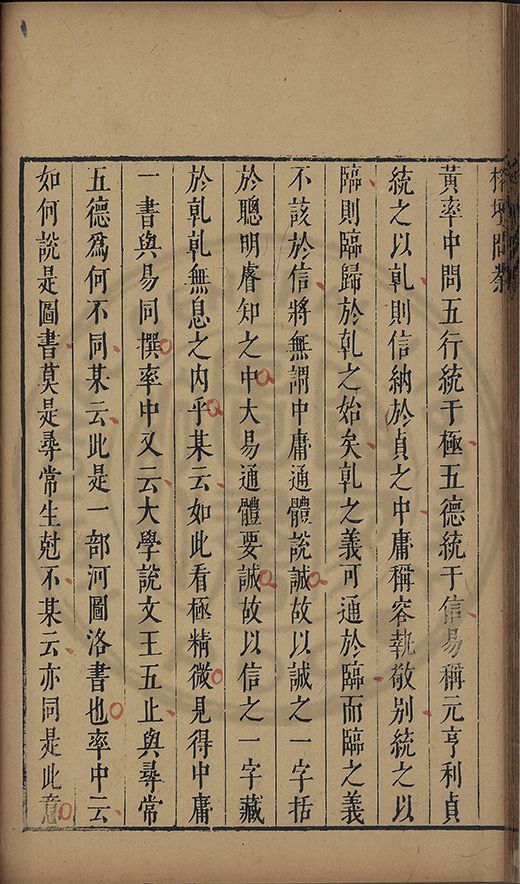 榕壇問業
黃率中問五行統于極五德統于信易稱元亨利貞
統之以乹則信納於貞之中庸稱容執敬別統之以
臨則臨歸於乹之始矣乹之義可通於臨而臨之義
不該於信將無謂中庸通體說誠故以誠之一字括
於聰明睿知之中大易通體要誠故以信之一字藏
於乹乹無息之內乎某云如此看極精微見得中庸
一書與易同撰率中又云大學說文王五止與尋常
五德爲何不同某云此是一部河圖洛書也率中云
如何說是圖書莫是尋常生尅不某云亦同是此意